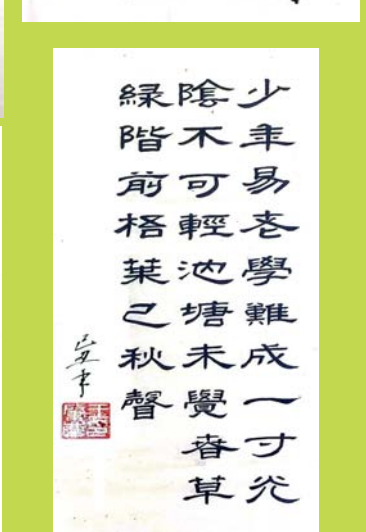 少年易老學難成一寸光
陰不可輕池塘未覺春草
緑階前梧葉已秋聲
己丑年